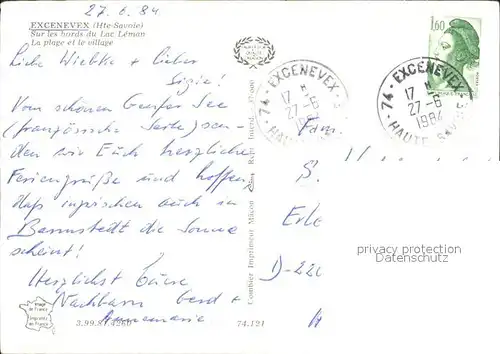 27.6.84
EXCENEVEX (Hte-Savoie)
Sur les bords du Lac Léman
La plage et le village
Liebe Wiebke + lieber
Vom schönen Genfer See
(französische Seite) sen-
den wir Euch herzliche
Feriengrüße und hoffen,
daß inzwischen auch in
Barmstedt die Sonne
scheint!
Herzlichst Eure
Nachbarn Gerd +
Annemarie
Image de France
Imprimée en France
3.99.81.4266
74.121
Combier Imprimeur Mâcon
1,60
74 - EXCENEVEX
17 H
27-6
1984
HAUTE SAVOIE
74 - EXCENEVEX
17 H
27-6
HAUTE
Fam.
S.
Erle
D-220
privacy protection
Datenschutz